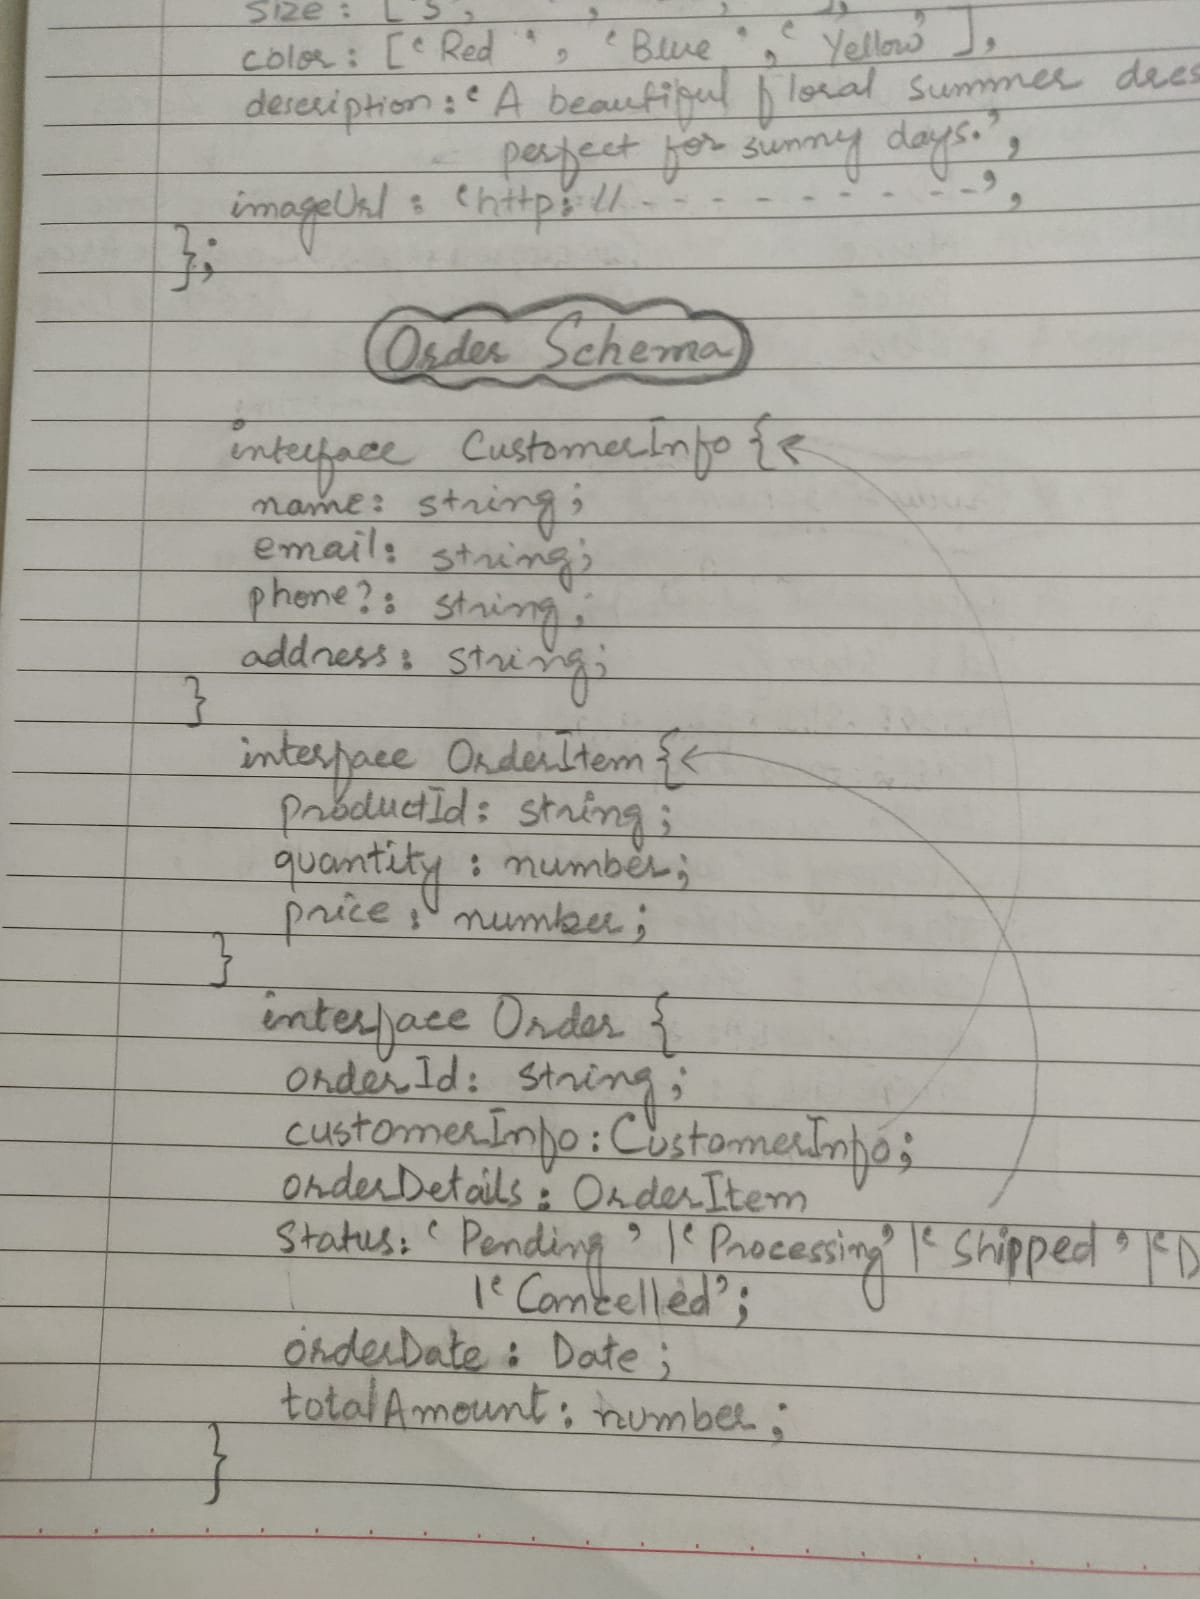 size: ['S',
color: ['Red', 'Blue', 'Yellow'],
description: 'A beautiful floral summer dres
perfect for sunny days.',
imageUrl: 'http://- - - - - - - - -',
};
Order Schema
interface CustomerInfo {
name: string;
email: string;
phone?: string;
address: string;
}
interface OrderItem {
productId: string;
quantity: number;
price: number;
}
interface Order {
orderId: string;
customerInfo: CustomerInfo;
orderDetails: OrderItem
Status: 'Pending' | 'Processing' | 'Shipped' | 'D
| 'Cancelled';
orderDate: Date;
totalAmount: number;
}